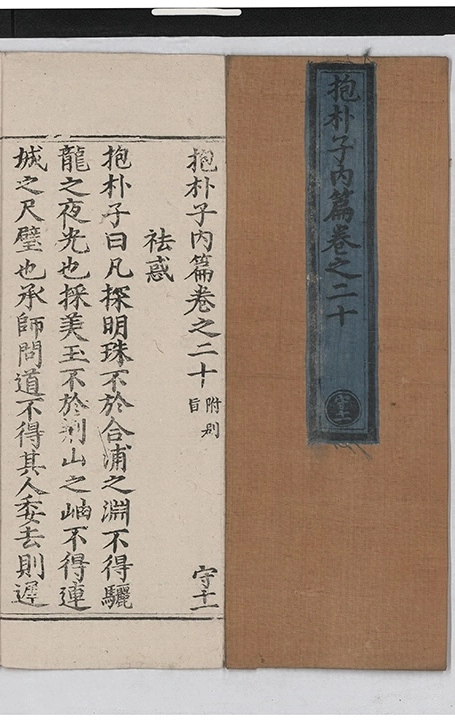 抱朴子內篇卷之二十
守十一
抱朴子內篇卷之二十 附別旨 守十一
祛惑
抱朴子曰凡探明珠不於合浦之淵不得驪
龍之夜光也採美玉不於荆山之岫不得連
城之尺璧也承師問道不得其人委去則遲